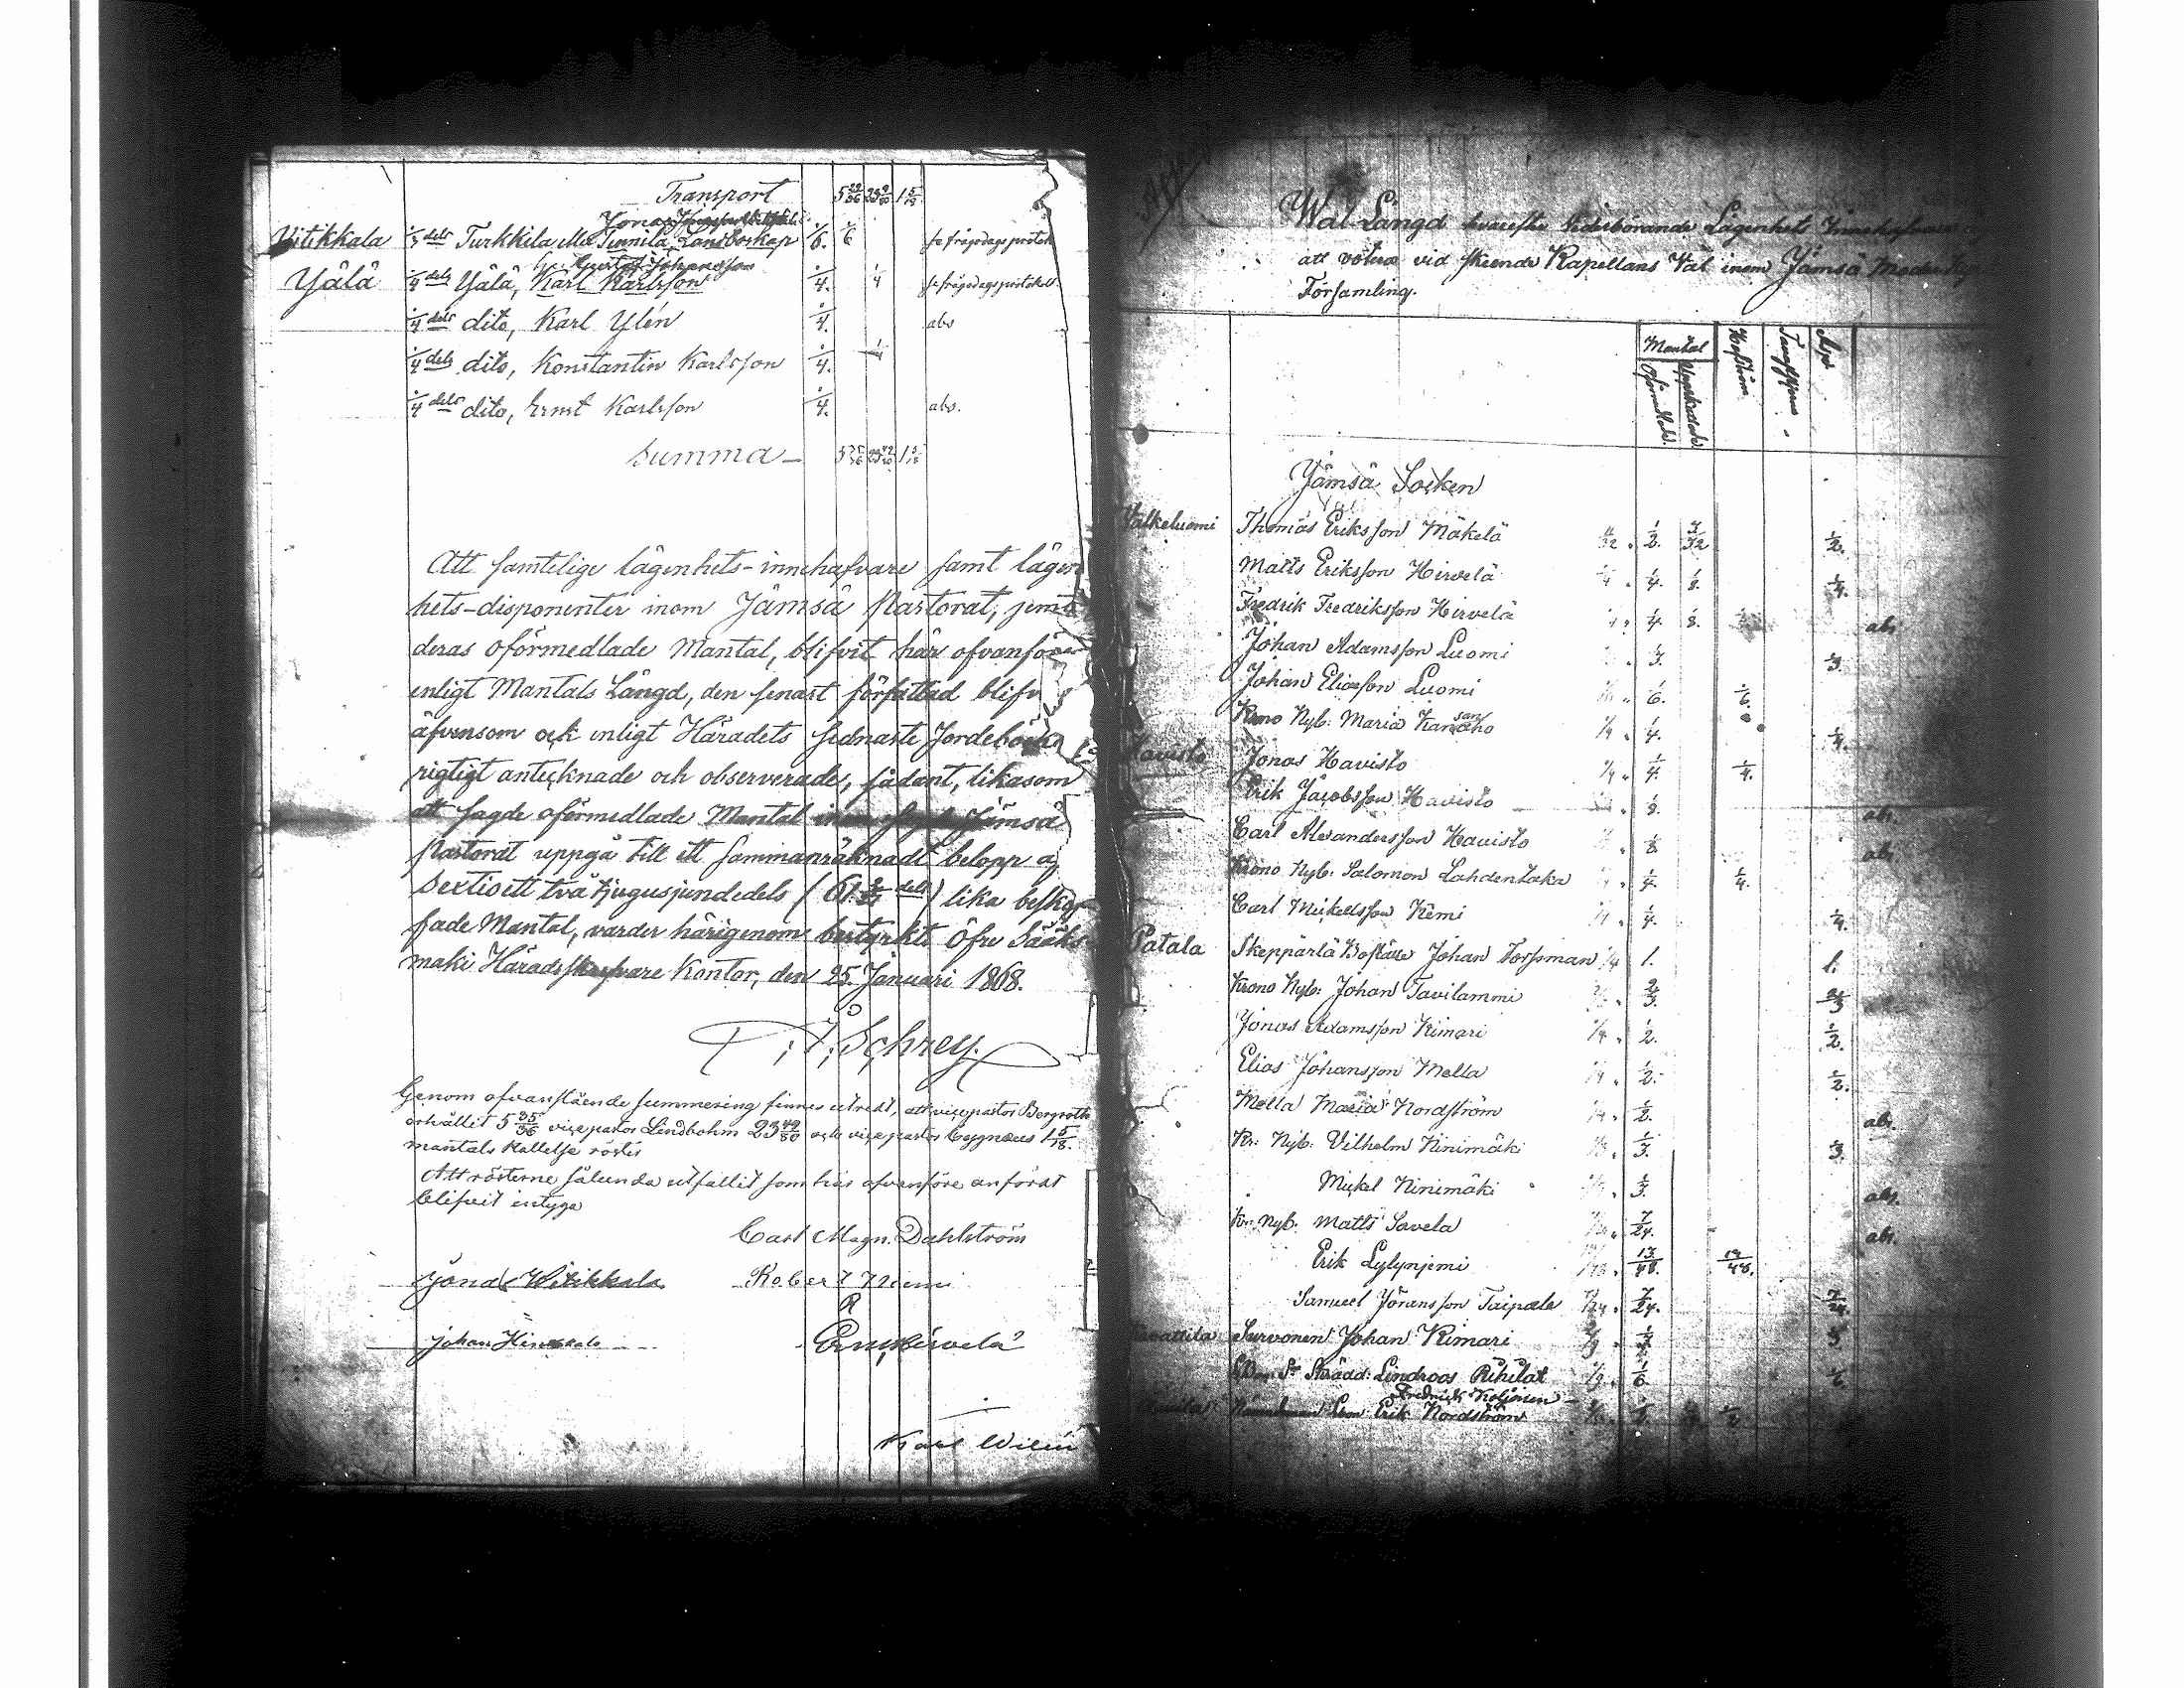 Transport 5 22/36 23 9/40 1 5/18
Jonas
Vitikkala 1/3 dels Turkkila Landboskap 1/6. 1/6 se frågodags protok
Gustaf Johansson
Yälä 1/4 dels Yälä, Karl Karlsson 1/4. 1/4 se frågodagsprotokoll
1/4 dels dito, Karl Ylén 1/4. abs
1/4 dels dito, Konstantin Karlsson 1/4. 1/4
1/4 dels dito, Ernst Karlsson 1/4. abs.
Summa
Att samtelige lägenhets-innehafvare samt lägen
hets-disponenter inom Jämsä Pastorat, jemte
deras oförmedlade Mantal, blifvit här ofvanföre
enligt Mantals Längd, den senast författad blifv
äfvensom ock enligt Häradets sednaste Jordebök
rigtigt antecknade och observerade, sådant, likasom
att sagde oförmedlade Mantal Jämsä
Pastorat uppgå till ett sammanräknadt belopp af
Sextioett två tjugusjundedels (61 2/27 dels) lika beskaf
fade Mantal, varder härigenom bestyrkt. Öfre Sääks
mäki Häradsskrifvare Kontor, den 25. Januari 1868.
Schrey.
Genom ofvanstående summering finnes utredt, att vice pastor Bergroth
erhållit 5 35/36 vice pastor Lindbohm 23 vice pastor Cygnæus 1 5/18.
mantals kallelse röster
Att rösterne sålunda utfallit som här ofvanföre anfördt
blifvit intyga
Carl Magn. Dahlström
Jonas Witikkala Robert Niemi
Johan
Karl Wilén
Wal Längd hvarefter vederbörande Lägenhets Innehafvare
att votera vid skeende Kapellans Val inom Jämsä Moder
Församling.
Mantal
Oförmedl. Hafström
Jämsä Socken
Valkeluomi Thomas Eriksson Mäkelä 1/2. 7/32 1/2.
Matts Eriksson Hirvelä 1/4. 1/8. 1/4.
Fredrik Fredriksson Hirvelä 1/4. 1/8. abs.
Johan Adamsson Luomi 1/3. 1/3.
Johan Eliasson Luomi 1/6. 1/6.
Krono Nyb: Maria Kansanaho 1/4. 1/4.
Havisto Jonas Havisto 1/4. 1/4.
Erik Jacobsson Havisto 1/8. abs.
Carl Alexandersson Havisto 1/8. abs.
Krono Nyb: Salomon Lahdentaka 1/4. 1/4.
Carl Mickelsson Kemi 1/4. 1/4.
Patala Skeppärlä Boställe Johan Forssman 1. 1.
Krono Nyb: Johan Tavilammi 2/3. 2/3
Jonas Adamsson Kimari 1/2. 1/2.
Elias Johansson Mella 1/2. 1/2.
Mella Maria Nordström 1/2. abs.
Kr: Nyb: Vilhelm Ninimäki 1/3. 1/3.
Mickel Ninimäki 1/3. abs.
Kr: Nyb: Matts Savela 7/24. abs.
Erik Lylynjemi 17/48. 17/48.
Samuel Jöransson Taipale 7/24. 7/24.
Survonen Johan Kimari
Lindroos Rihilat 1/6. 1/6
Fredrick Koljonen
Erik Nordström 1/2. 1/2